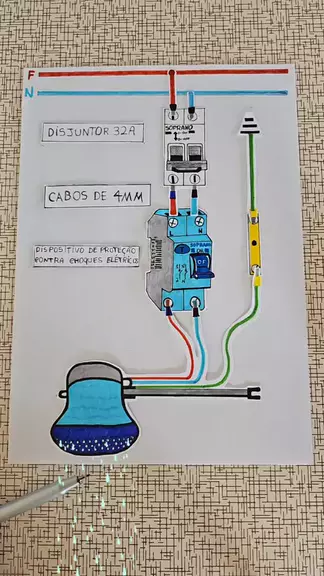 F
N
DISJUNTOR 32A
SOPRANO
CABOS DE 4MM
DISPOSITIVO DE PROTEÇÃO
CONTRA CHOQUES ELÉTRICOS
N
SOPRANO